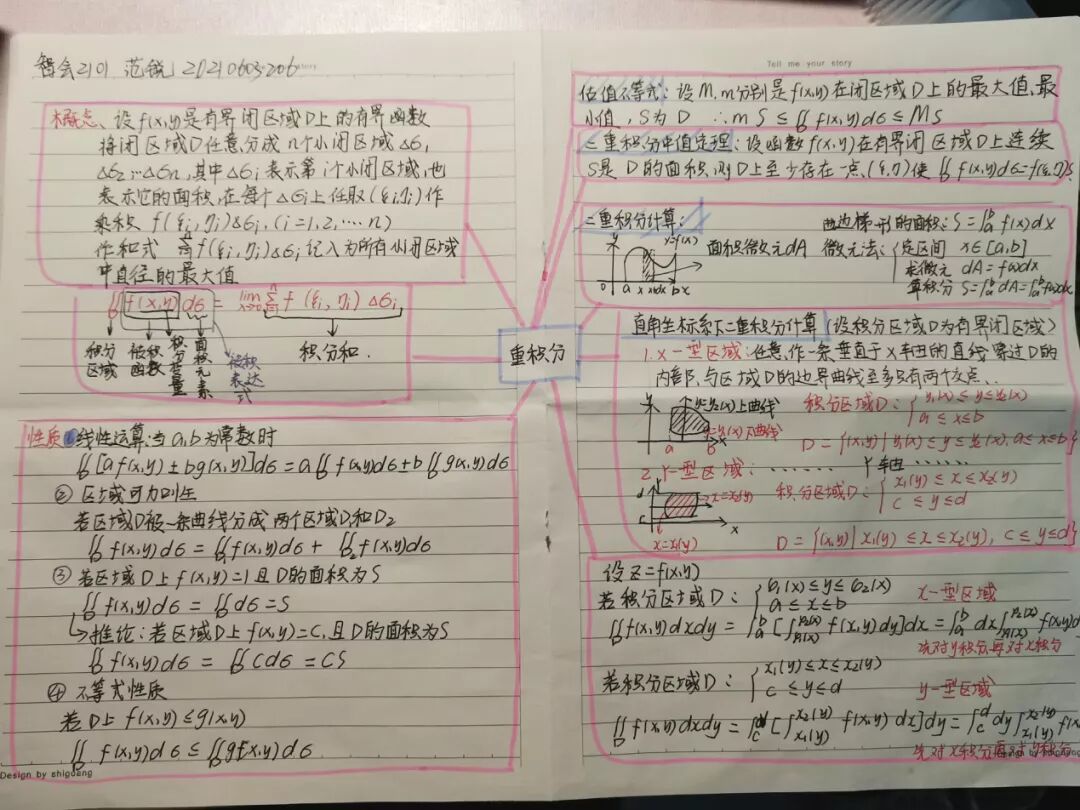 智会2101 范锐 20210603206
概念、设f(x,y)是有界闭区域D上的有界函数
将闭区域D任意分成n个小闭区域Δ6₁
Δ6₂…Δ6n,其中Δ6i表示第i个小闭区域,也
表示它的面积,在每个Δ6i上任取(ξi,ηi)作
乘积 f(ξi,ηi)Δ6i,(i=1,2,…n)
作和式 Σf(ξi,ηi)Δ6i,记入为所有小闭区域
中直径的最大值
∬D f(x,y)d6 = lim Σ f(ξi,ηi)Δ6i
积分区域 被积函数 积分变量 面积元素 被积表达式 积分和.
性质①线性运算:当a,b为常数时
∬D[af(x,y)±bg(x,y)]d6=a∬D f(x,y)d6+b∬D g(x,y)d6
② 区域可加性
若区域D被一条曲线分成两个区域D₁和D₂
∬D f(x,y)d6 = ∬D₁ f(x,y)d6 + ∬D₂ f(x,y)d6
③ 若区域D上f(x,y)=1且D的面积为S
∬D f(x,y)d6 = ∬D d6=S
推论:若区域D上f(x,y)=C,且D的面积为S
∬D f(x,y)d6 = ∬D Cd6=CS
④ 不等式性质
若D上f(x,y)≤g(x,y)
∬D f(x,y)d6 ≤ ∬D g(x,y)d6
Design by shiguang
重积分
Tell me your story
估值不等式:设M,m分别是f(x,y)在闭区域D上的最大值,最
小值,S为D ∴mS≤∬D f(x,y)d6≤MS
二重积分中值定理:设函数f(x,y)在有界闭区域D上连续
S是D的面积,则D上至少存在一点(ξ,η)使∬D f(x,y)d6=f(ξ,η)S
二重积分计算: 曲边梯形的面积:S=∫ₐᵇ f(x)dx
y y=f(x) 面积微元dA 微元法: 定区间 x∈[a,b]
求微元 dA=f(x)dx
0 a x x+dx b x 算积分 S=∫ₐᵇ dA=∫ₐᵇ f(x)dx
直角坐标系下二重积分计算(设积分区域D为有界闭区域)
1.x-型区域:任意作一条垂直于x轴的直线穿过D的
内部,与区域D的边界曲线至多只有两个交点、
y y=y₂(x)上曲线 积分区域D: y₁(x)≤y≤y₂(x)
y=y₁(x)下曲线 a≤x≤b
a b x D={(x,y)|y₁(x)≤y≤y₂(x),a≤x≤b}
2.Y-型区域:…… Y轴……
d x=x₂(y) 积分区域D: x₁(y)≤x≤x₂(y)
c x c≤y≤d
x=x₁(y) D={(x,y)|x₁(y)≤x≤x₂(y),c≤y≤d}
设z=f(x,y)
若积分区域D: 6₁(x)≤y≤6₂(x) x-型区域
a≤x≤b
∬D f(x,y)dxdy=∫ₐᵇ[∫ f(x,y)dy]dx=∫ₐᵇdx∫ f(x,y)d
先对y积分,再对x积分
若积分区域D: x₁(y)≤x≤x₂(y)
c≤y≤d y-型区域
∬D f(x,y)dxdy=∫[∫ f(x,y)dx]dy=∫dy∫ f(x,
先对x积分再对y积分